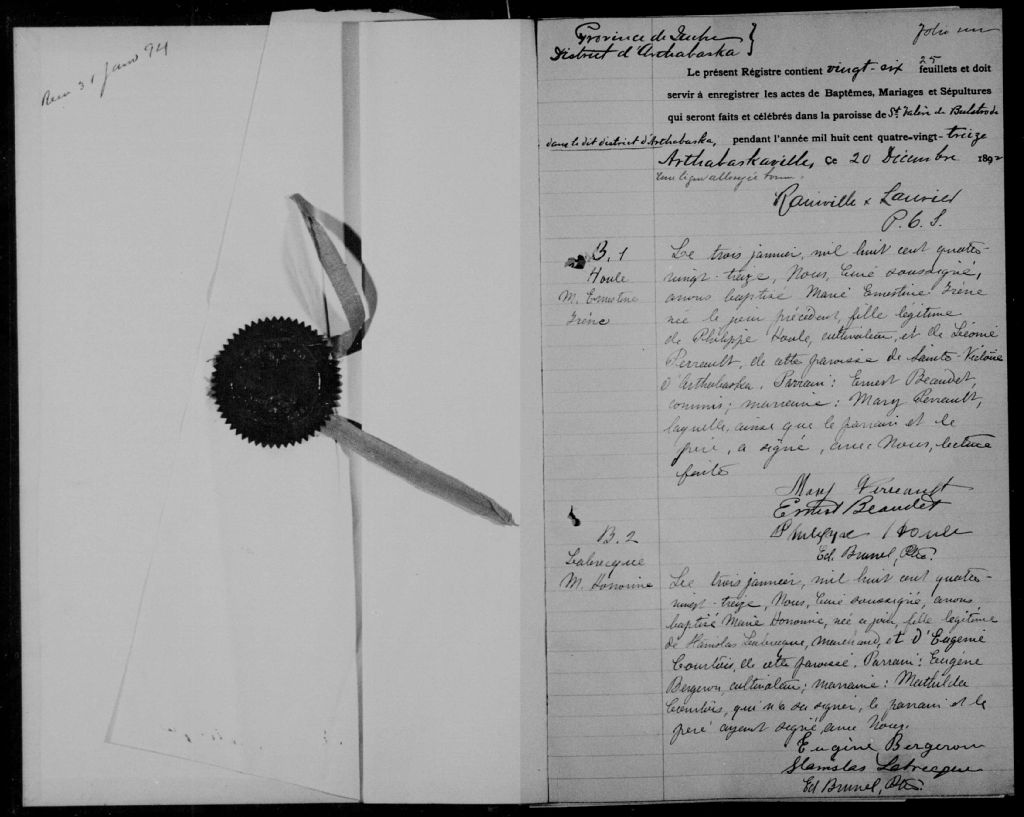 Recu 31 Janv 94
Province de Québec
District d'Arthabaska
folio un
Le présent Régistre contient vingt-six 25 feuillets et doit
servir à enregistrer les actes de Baptêmes, Mariages et Sépultures
qui seront faits et célébrés dans la paroisse de St Valère de Bulstrode
dans le dit district d'Arthabaska, pendant l'année mil huit cent quatre-vingt-treize
Arthabaskaville, Ce 20 Décembre 1892
Une ligne allongée bonne.
Rainville & Laurier
P.C.S.
B. 1
Houle
M. Ernestine
Irène
Le trois janvier, mil huit cent quatre-
vingt-treize, Nous, Curé soussigné,
avons baptisé Marie Ernestine Irène
née le jour précédent, fille légitime
de Philippe Houle, cultivateur, et de Léonie
Perreault, de cette paroisse de Sainte-Victoire
d'Arthabaska. Parrain: Ernest Beaudet,
commis; marraine: Mary Perreault,
laquelle, ainsi que le parrain et le
père, a signé, avec Nous, lecture
faite
Mary Perreault
Ernest Beaudet
Philippe Houle
Ed. Brunel, Ptre.
B. 2
Labrecque
M. Honorine
Le trois janvier, mil huit cent quatre-
vingt-treize, Nous, Curé soussigné, avons
baptisé Marie Honorine, née ce jour, fille légitime
de Stanislas Labrecque, marchand, et d'Eugénie
Courtois, de cette paroisse. Parrain: Eugène
Bergeron, cultivateur; marraine: Mathilda
Courtois, qui n'a su signer, le parrain et le
père ayant signé avec Nous.
Eugène Bergeron
Stanislas Labrecque
Ed. Brunel, Ptre.